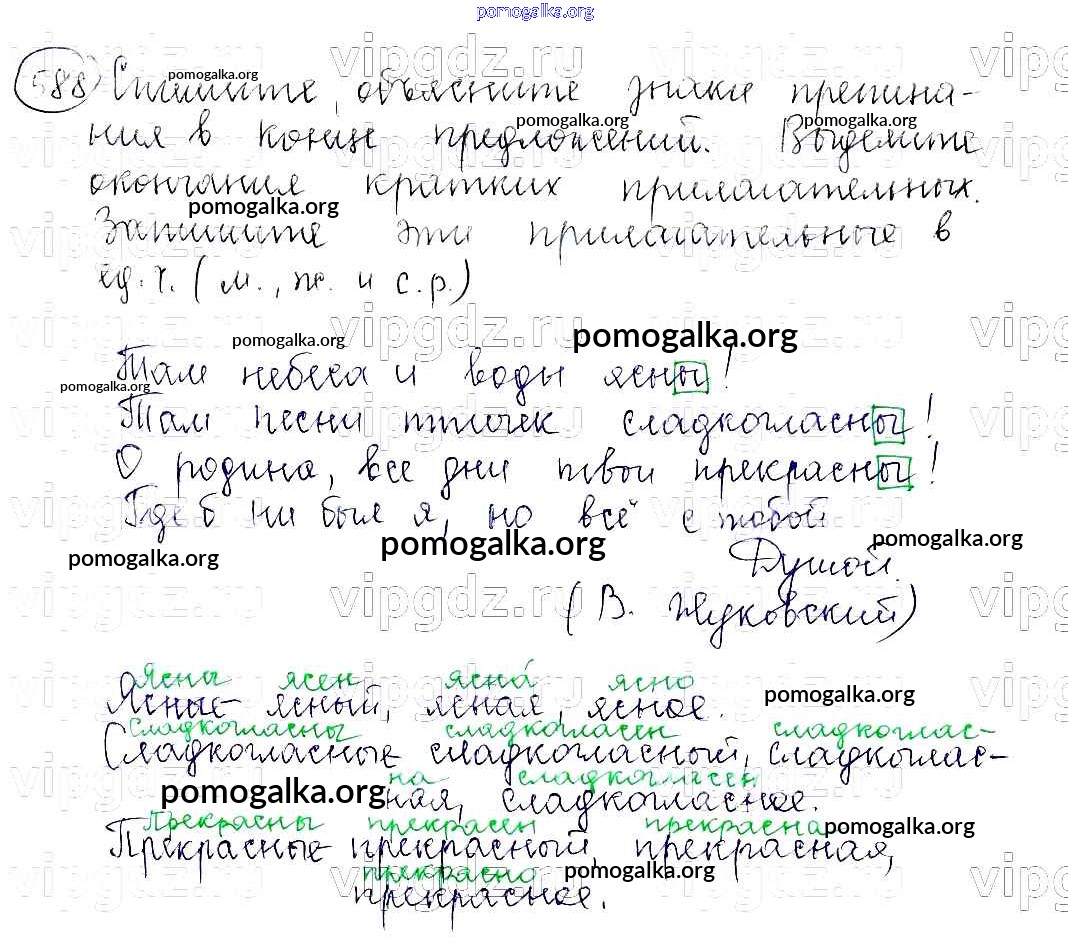 pomogalka.org
588 Спишите, объясните знаки препина-
ния в конце предложений. Выделите
окончания кратких прилагательных.
Запишите эти прилагательные в
ед. ч. (м., ж. и с.р.)
Там небеса и воды ясны!
Там песни птичек сладкогласны!
О родина, все дни твои прекрасны!
Где б ни был я, но всё с тобой
Душой.
(В. Жуковский)
Ясны ясен яснá ясно
Ясные – ясный, ясная, ясное.
Сладкогласны сладкогласен сладкоглас-
Сладкогласные сладкогласный, сладкоглас-
на сладкогласен
ная, сладкогласное.
Прекрасны прекрасен прекрасна
Прекрасные – прекрасный, прекрасная,
прекрасно
прекрасное.